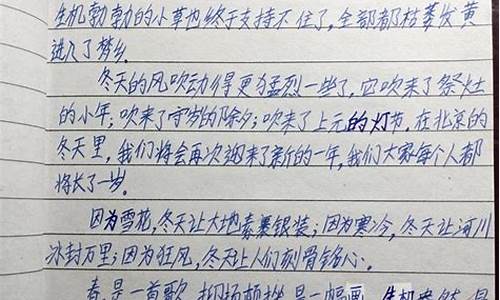 生机勃勃的小草也终于支持不住了,全部都枯萎发黄
进入了梦乡。
冬天的风吹动得更为猛烈一些了,它吹来了祭灶
的小年;吹来了守岁的除夕;吹来了上元的灯节。在北京的
冬天里,我们将会再次迎来了新的一年,我们大家每个人都
将长了一岁。
因为雪花,冬天让大地素裹银装;因为寒冷,冬天让河川
冰封万里;因为狂风,冬天让人们刻骨铭心。
春是一首歌,抑扬顿挫是一幅画,生机盎然